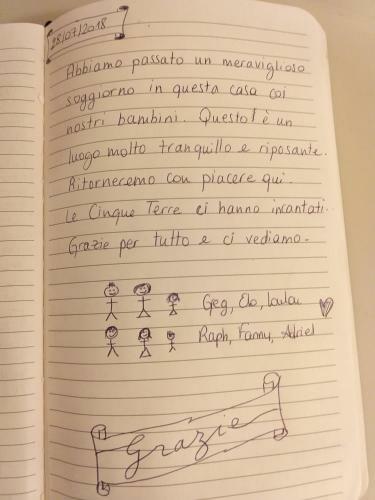 28/07/2018
Abbiamo passato un meraviglioso
soggiorno in questa casa coi
nostri bambini. Questo è un
luogo molto tranquillo e riposante.
Ritorneremo con piacere qui.
Le Cinque Terre ci hanno incantati.
Grazie per tutto e ci vediamo.
Geg, Elo, Loulou
Raph, Fanny, Adriel
Grazie